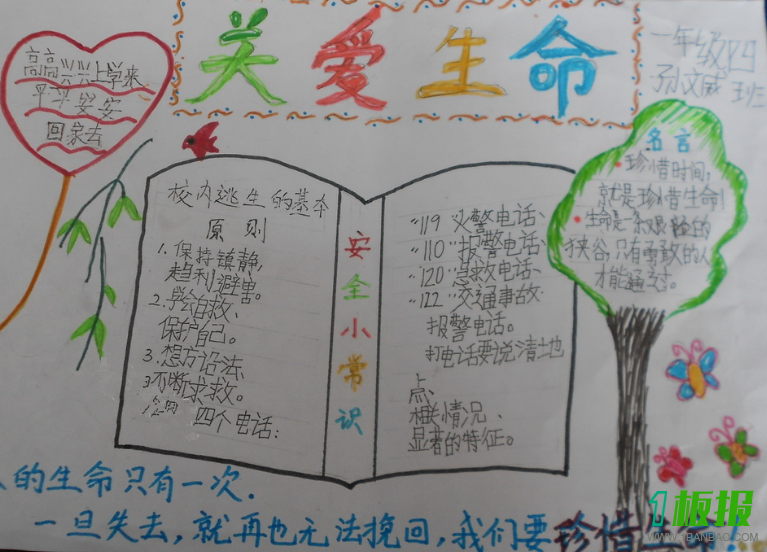 关爱生命
一年级四班
孙文威
高高兴兴上学来
平平安安
回家去
校内逃生的基本
原则
1.保持镇静,
趋利避害。
2.学会自救、
保护自己。
3.想方设法、
不断求救。
四个电话:
安全小常识
"119"火警电话、
"110"报警电话、
"120"急救电话、
"122"交通事故
报警电话。
打电话要说清地
点、
相关情况、
显著的特征。
名言
珍惜时间,
就是珍惜生命!
生命是一条艰险的
峡谷,只有勇敢的人
才能通过。
的生命只有一次.
一旦失去,就再也无法挽回,我们要珍惜
1板报
WWW.1BANBAO.COM